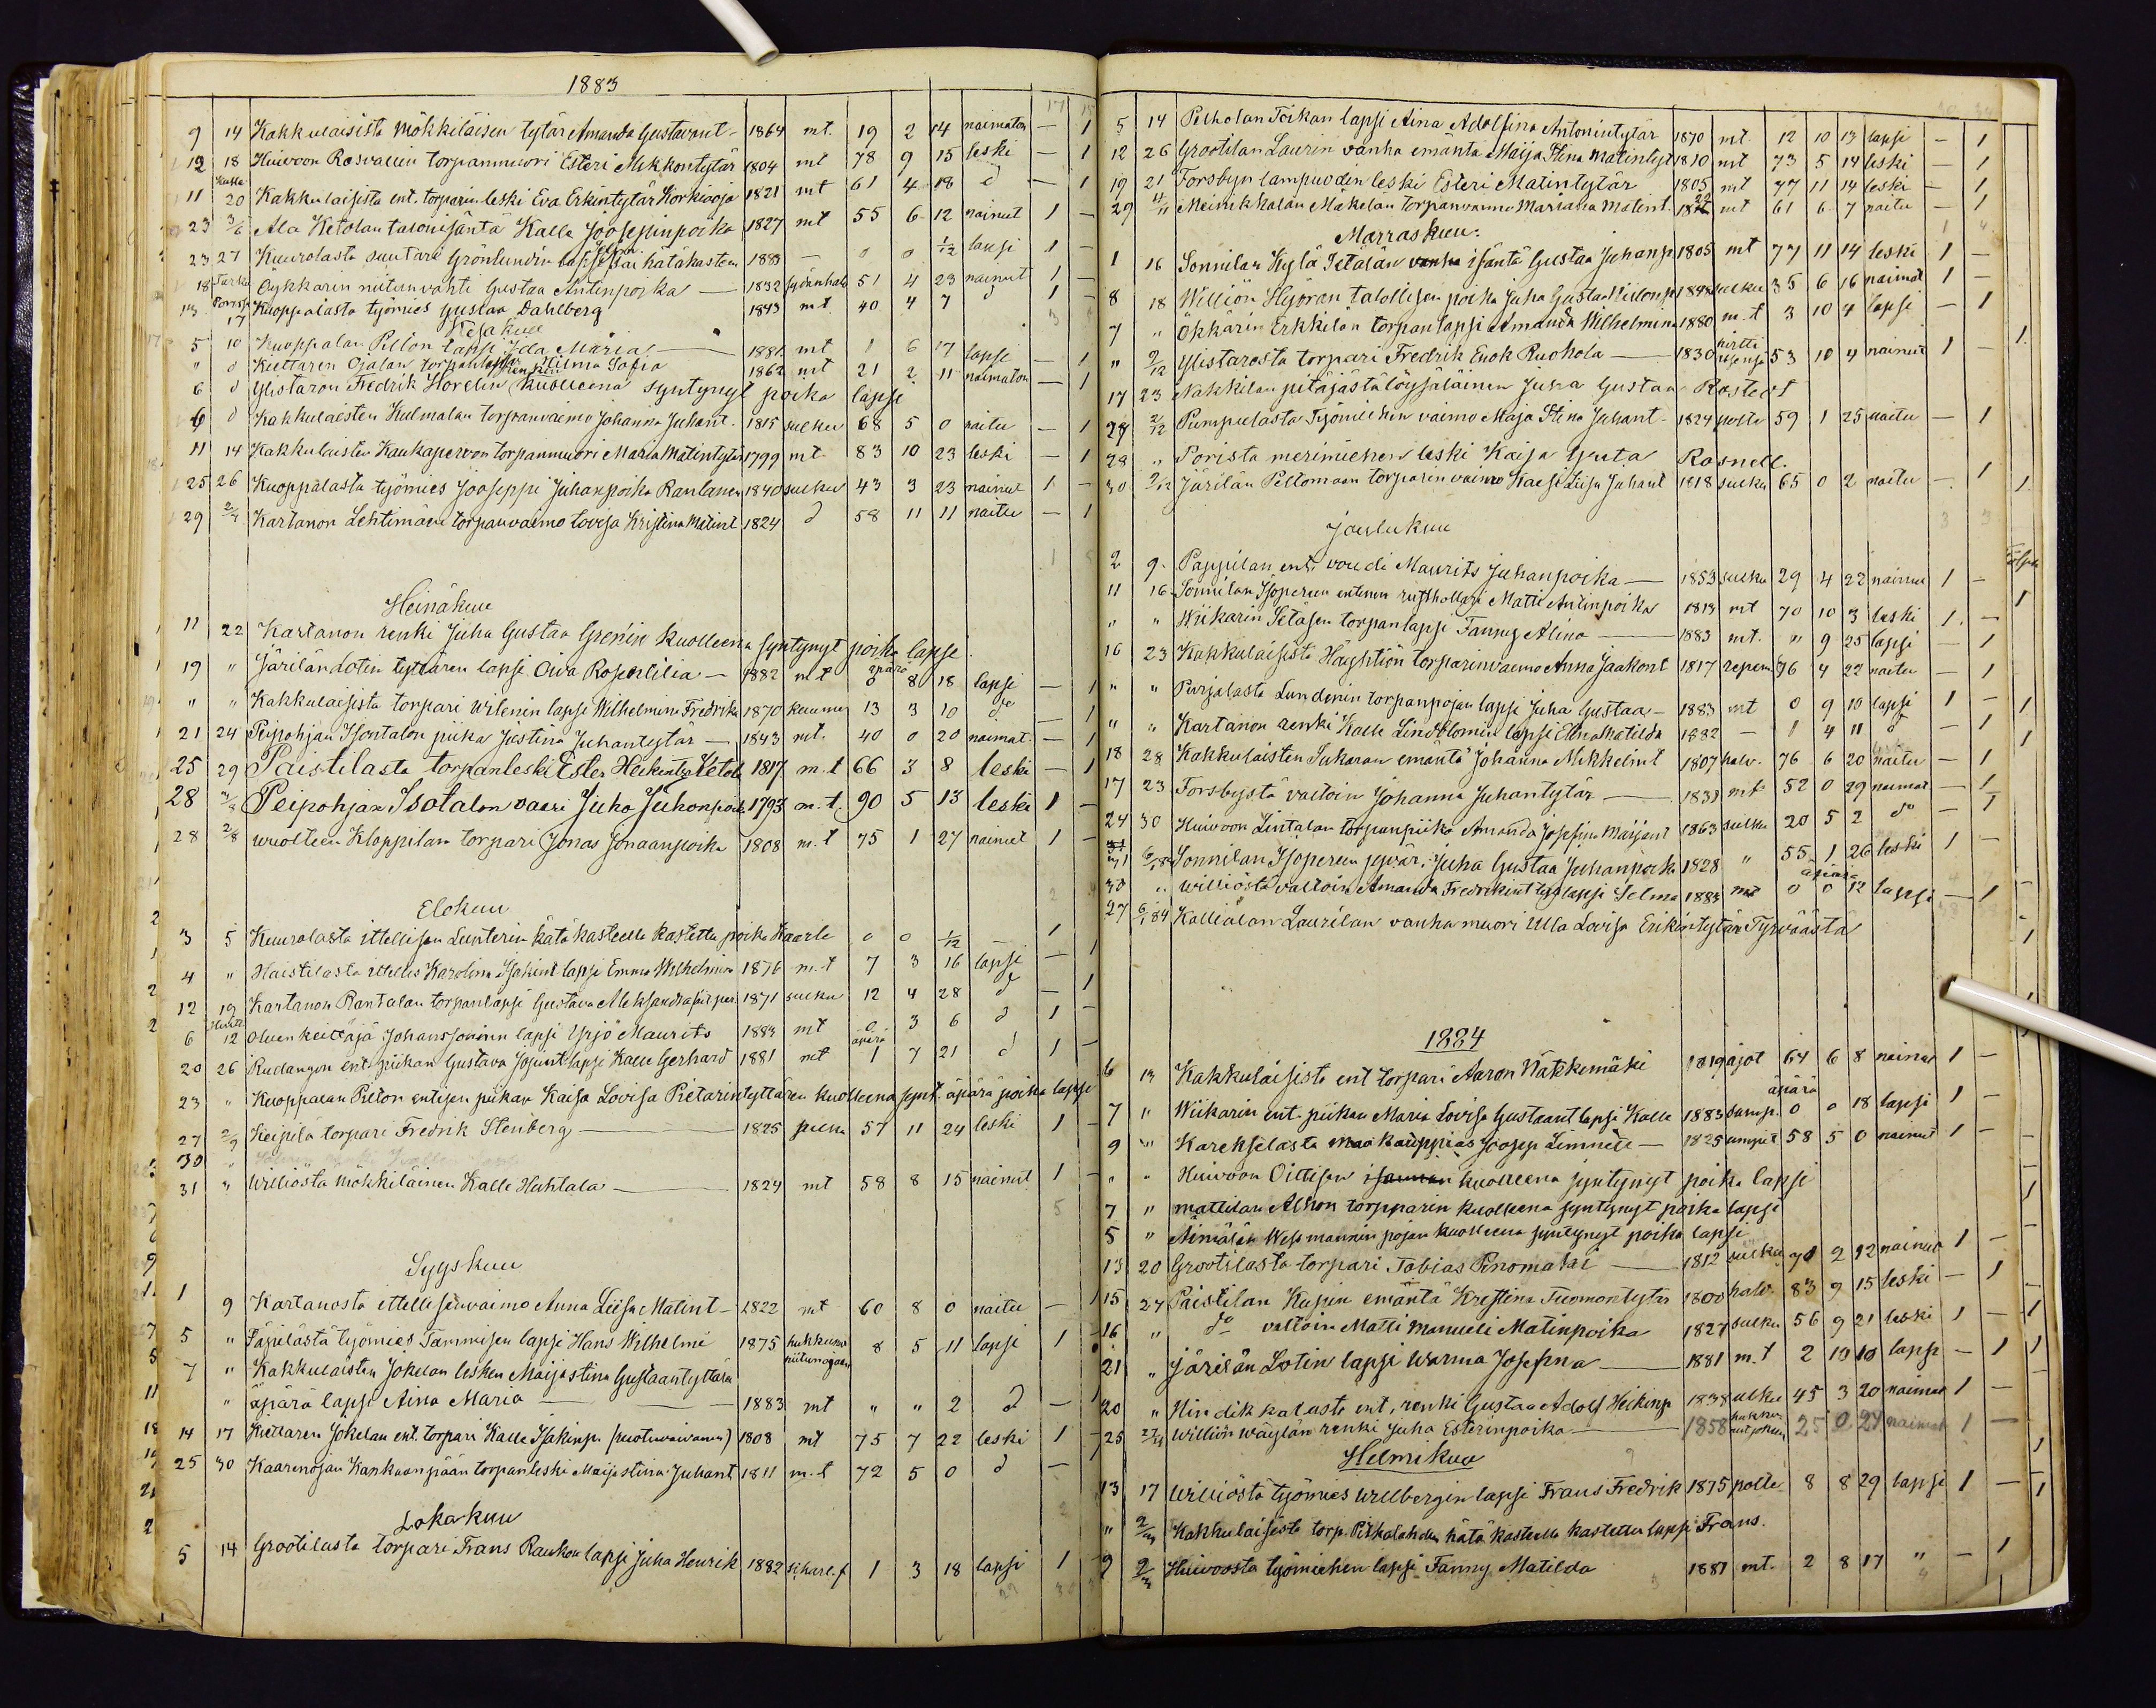 1883
9 14 Kakkulaisista Mökkiläisen tytär Amanda Gustavint - 1864 mt. 19 2 14 naimaton — 1
12 18 Huivoon Rosvallin torpanmuori Esteri Mikkontytär 1804 mt 78 9 15 leski — 1
11 20 Kakkulaisista ent. torparin leski Eva Erkintytär Korkiooja 1821 mt 61 4 18 d — 1
23 3/6 Ala Ketolan talonisäntä Kalle Jooseppinpoika 1827 mt 55 6 12 nainut 1 —
23 27 Kuurolasta suutari Grönlundin lapsi sai hätäkasteen 1883 — 0 0 1/12 lapsi 1 —
18 Turku Öykkärin niitunvahti Gustaa Antinpoika — 1832 sydänhalv 51 4 23 nainut 1 —
13 17 Kuoppalasta työmies Gustaa Dahlberg 1843 mt 40 4 7 d 1 —
Kesäkuu
5 10 Kuoppalan Pillon lapsi Ida Maria — 1881 mt 1 6 17 lapsi — 1
" d Kiettaren Ojalan torpan Hilma Sofia 1862 mt 21 2 11 naimaton — 1
6 d Ylistaron Fredrik Horelin kuolleena syntynyt poika lapsi
6 d Kakkulaisten Kulmalan torpanvaimo Johanna Juhant. 1815 suku 68 5 0 naitu — 1
11 14 Kakkulaisten Kaukaperoon torpanmuori Maria Matintytär 1799 mt 83 10 23 leski — 1
25 26 Kuoppalasta työmies Jooseppi Juhanpoika Rantanen 1840 suku 43 3 23 nainut 1 —
29 2/7 Kartanon Lehtimäen torpanvaimo Lovisa Kristina Matint 1824 d 58 11 11 naitu — 1
Heinäkuu
11 22 Kartanon renki Juha Gustaa Grenin kuolleena syntynyt poika lapsi.
19 " Järilän Lotin tyttären lapsi Oiva Rosentilia — 1882 mt äpärä 0 8 18 lapsi — 1
" " Kakkulaisista torpari Urlenin lapsi Wilhelmina Fredrika 1870 kuume 13 3 10 do — 1
21 24 Peipohjan Isontalon piika Justina Juhantytär — 1843 mt. 40 0 20 naimat. — 1
25 29 Paistilasta torpanleski Ester Heikintyt Ketola 1817 m.t 66 3 8 leski — 1
28 Peipohjan Isotalon vaari Juho Juhonpoika 1793 m.t. 90 5 13 leski 1 —
28 2/8 Wuolteen Kloppilan torpari Jonas Jonaanpoika 1808 m.t 75 1 27 nainut 1 —
Elokuu
3 5 Kuurolasta ittellisen Lunterin hätäkasteella kastettu poika Kaarle 0 0 1/12 1
4 " Haistilasta ittellis Karolina Isakint lapsi Emma Wilhelmina 1876 m.t 7 3 16 lapsi — 1
12 19 Kartanon Rantalan torpanlapsi Gustava Aleksandra 1871 suku 12 4 28 d — 1
6 12 Oluen keittäjä Johanssonin lapsi Yrjö Maurits 1883 mt 0 3 6 d 1 —
20 26 Rudangon ent. piikan Gustava Josefint lapsi Kalle Gerhard 1881 mt äpärä 1 7 21 d 1 —
23 " Kuoppalan Pilton entisen piikan Kaisa Lovisa Pietarintyttären kuolleena synt. äpärä poika lapsi
27 2/9 Keipilä torpari Fredrik Stenberg — 1825 57 11 24 leski 1 —
30 "
31 " Williöstä mökkiläinen Kalle Huhtala — 1824 mt 58 8 15 nainut 1 —
Syyskuu
1 9 Kartanosta ittellisenvaimo Anna Liisa Matint — 1822 mt 60 8 0 naitu — 1
5 " työmies Tammisen lapsi Hans Wilhelmi 1875 hukkunut niitunojaan 8 5 11 lapsi 1 —
7 " Kakkulaisten Jokelan lesken Maijastina Gustaantyttären
" äpärä lapsi Aina Maria — 1883 mt " " 2 d — 1
14 17 Kiettaren Jokelan ent. torpari Kalle Isakinp. (ruotuvaivanen) 1808 mt 75 7 22 leski 1 —
25 30 Kaarenojan Kankaanpään torpanleski Maijastina Juhant 1811 m.t 72 5 0 d —
Lokakuu
5 14 Grootilasta torpari Frans Raukon lapsi Juha Henrik 1882 1 3 18 lapsi 1 —
5 14 Pelholan Toikan lapsi Aina Adolfina Antonintytär 1870 mt 12 10 13 lapsi — 1
12 26 Grootilan Laurin vanha emäntä Maija Stina Matintyt 1810 mt 73 5 14 leski — 1
19 21 Forsbyn lampuodin leski Esteri Matintytär 1805 mt 77 11 14 leski — 1
29 4/11 Meinikkalan Mäkelän torpanvaimo Mariana Matint. 1822 mt 61 6 7 naitu — 1
Marraskuu.
1 16 Sonnilan Kylä Setälän vanha isäntä Gustaa Juhanp 1805 mt 77 11 14 leski 1 —
8 18 Williön Hypran talollisen poika Juha Gustaa 1848 suku 35 6 16 naimat 1 —
7 " Ökkärin Erkkilän torpan lapsi Amanda Wilhelmina 1880 m.t 3 10 4 lapsi — 1
" 2/12 Ylistarosta torpari Fredrik Enok Ruohola — 1830 53 10 4 nainut 1 —
17 23 Nakkilan pitäjästä löysäläinen Juha Gustaa Rostedt
28 2/12 Pumpulasta Työmiehen vaimo Maja Stina Juhant — 1824 poltt 59 1 25 naitu — 1
28 " Porista merimiehen leski Kaisa Greta Rosnell.
30 9/12 Järilän Peltomaan torparin vaimo Kaisa Liisa Juhant 1818 suku 65 0 2 naitu — 1
Joulukuu
2 9. Pappilan ent. voudi Maurits Juhanpoika — 1853 suku 29 4 22 nainut 1 —
11 16 Sonnilan Isoperen entinen rusthollari Matti Antinpoika 1813 mt 70 10 3 leski 1 —
" " Wiikarin Setäsen torpanlapsi Fanny Alina — 1883 mt. " 9 25 lapsi — 1
16 23 Kakkulaisista Häyhtiön torparinvaimo Anna Jaakont 1817 76 4 22 naitu — 1
" " Purjalasta Lundenin torpanpojan lapsi Juha Gustaa — 1883 mt 0 9 10 lapsi 1 —
" " Kartanon renki Kalle Lindblomin lapsi Elina Matilda 1882 — 1 4 11 d — 1
18 28 Kakkulaisten Sukaran emäntä Johanna Mikkelint 1807 halv. 76 6 20 naitu — 1
17 23 Forsbystä valtoin Johanna Juhantytär — 1831 mt 52 0 29 naimat — 1
24 30 Huivoon Lintalan torpanpiika Amanda Josefina Maijant 1863 suku 20 5 2 do — 1
31 6/1 84 Sonnilan Isoperen Juha Gustaa Juhanpoika 1828 " 55 1 26 leski 1 —
30 " Williöstä valtoin Amanda Fredrikint lapsi Selma 1883 mt äpärä 0 0 12 lapsi — 1
27 6/1 84 Kallialan Laurilan vanha muori Ulla Lovisa Erikintytär Tyrväästä
1884
6 13 Kakkulaisista ent torpari Aaron Nätkinmäki 1819 ajot 64 6 8 nainut 1 —
7 " Wiikarin ent. piikan Maria Lovisa Gustaant lapsi Kalle 1883 äpärä 0 0 18 lapsi 1 —
9 " Karekselasta maakauppias Joosep Limnell — 1825 58 5 0 nainut 1 —
" " Huivoon Oittisen kuolleena syntynyt poika lapsi
7 " Mattilan Alhon torpparin kuolleena syntynyt poika lapsi
5 " Äimälän Wessmannin pojan kuolleena syntynyt poika lapsi
13 20 Grootilasta torpari Tobias Pinomäki — 1812 suku 71 2 12 nainut 1 —
15 27 Paistilan Kupin emäntä Kristina Tuomontytär 1800 halv 83 9 15 leski — 1
16 " do valtoin Matti Manueli Matinpoika 1827 suku 56 9 21 leski 1 —
21 " Järilän Lotin lapsi Warma Josefina — 1881 m.t 2 10 10 lapsi — 1
20 " Hindikkalasta ent. renki Gustaa Adolf Heikinp 1838 suku 45 3 20 naimat 1 —
25 Williön Wäylän renki Juha Esterinpoika — 1858 25 0 24 naimat 1 —
Helmikuu
13 17 Williöstä työmies Willbergin lapsi Frans Fredrik 1875 poltt 8 8 29 lapsi 1 —
" 2/3 Kakkulaisista torp. Pitkälahden hätäkasteella kastettu lapsi Frans.
9 2/3 Huivoosta työmiehen lapsi Fanny Matilda 1881 mt. 2 8 17 " — 1